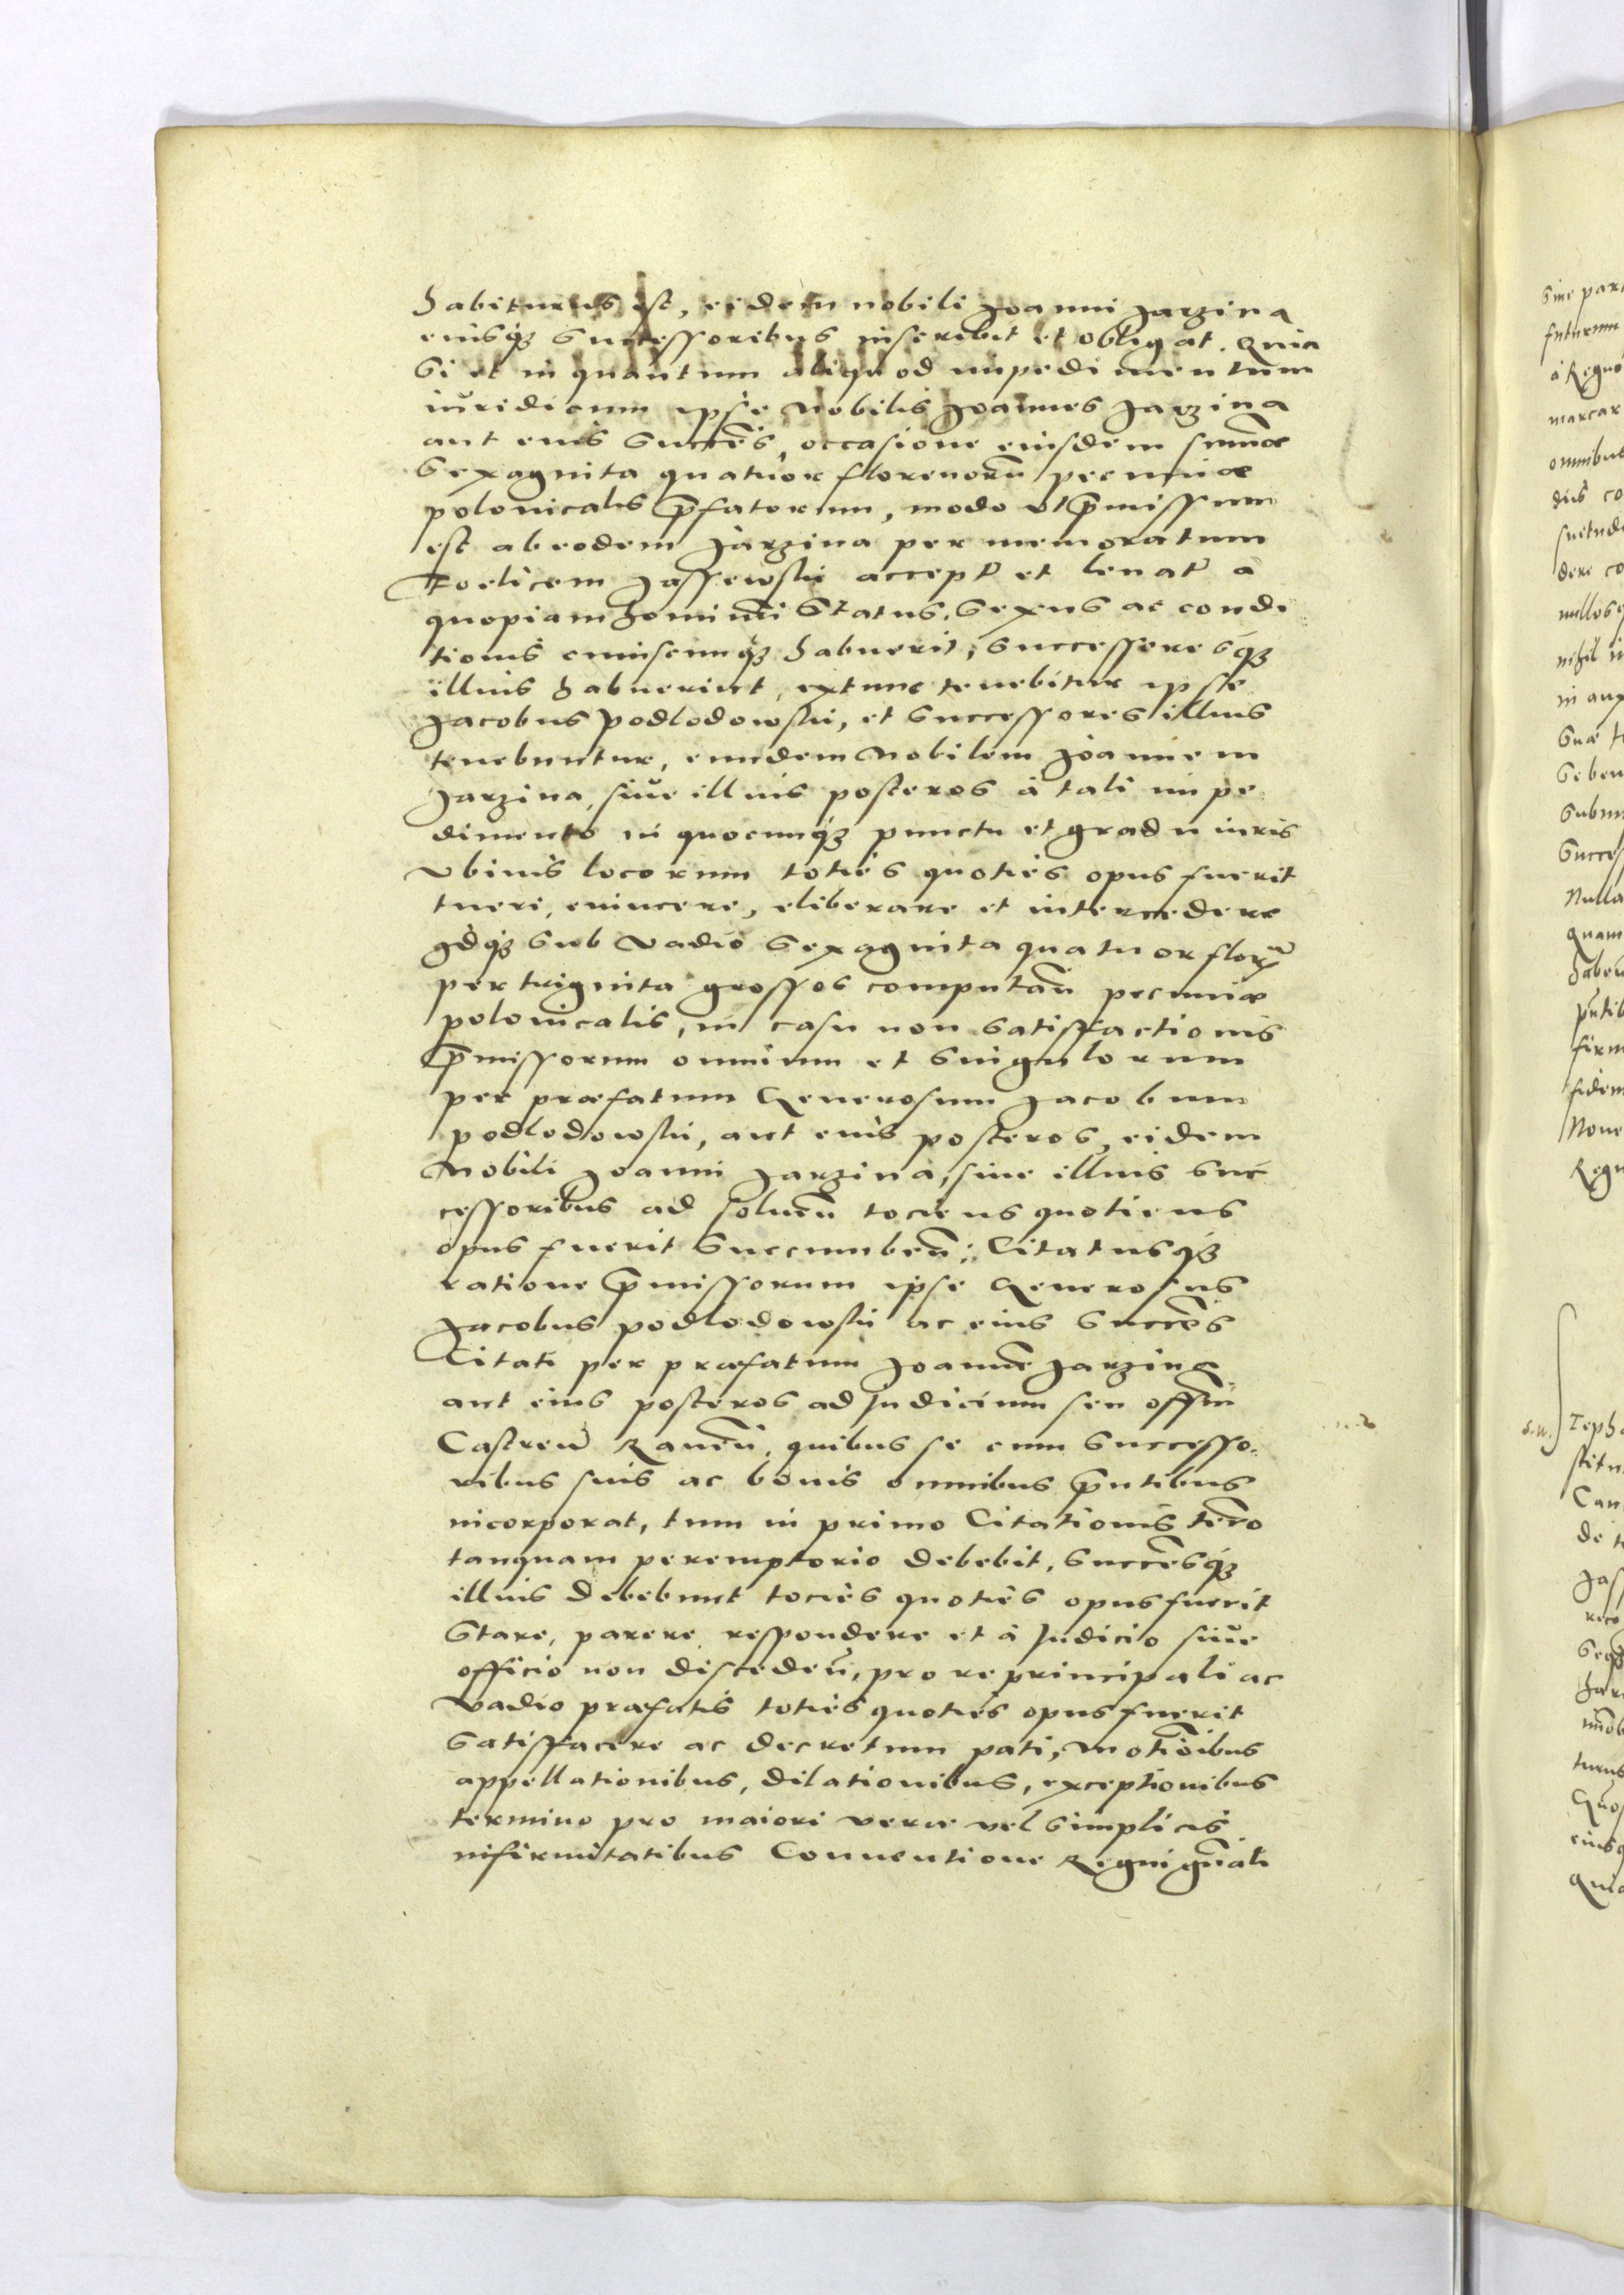 habiturus est, eidem nobili Joanni Jarzina
eiusq3 successoribus inscribit et obligat. Quia
si et in quantum aliquod impedimentum
iuridicum ipse Nobilis Joannes Jarzina
aut eius succes̃, occasione eiusdem sum̃æ
sexaginta quatuor florenorũ pecuniæ
polonicalis p̃fatorum, modo vt p̃missum
est ab eodem Jarzina per memoratum
Foelicem Jassewski accept̃ et leuat̃ à
quopiam hominũ status, sexus ac condi
tionis cuiuscunq3 habuerit, successoresq3
illius habuerint, extunc tenebitur ipse
Jacobus Podlodowski, et successores illius
tenebuntur, eundem Nobilem Joannem
Jarzina, siue illius posteros à tali impe
dimento in quocunq3 punctu et gradu iuris
vbiuis locorum toties quoties opus fuerit
tueri, euincere, eliberare et intercedere
idq3 sub vadio sexaginta quatuor florz̃
per triginta grossos computañ pecuniæ
polonicalis, in casu non satisfactionis
p̃missorum omnium et singulorum
per præfatum Generosum Jacobum
Podlodowski, aut eius posteros, eidem
Nobili Joanni Jarzina, siue illius suc
cessoribus ad solueñ tociens quotiens
opus fuerit succumbeñ: Citatusq3
ratione p̃missorum ipse Generosus
Jacobus Podlodowski ac eius succes̃
Citati per præfatum Joannẽ Jarzina
aut eius posteros ad Judicium seu offm̃
Castreñ Raueñ, quibus se cum successo-
ribus suis ac bonis omnibus p̃ntibus
incorporat, tum in primo Citationis ter̃o
tanquam peremptorio debebit, succes̃q3
illius debebunt tocies quoties opus fuerit
stare, parere respondere et à Judicio siue
officio non discedeñ, pro re principali ac
vadio præfatis toties quoties opus fuerit
satisfacere ac decretum pati, Motiõibus
appellationibus, dilationibus, exceptionibus
termino pro maiori veræ vel simplicis
infirmitatibus Conuentione Regni gñali
siue
futurum
à Regno
marcar
omnibus
nullos
nihil
in
suæ
submi
Succes
Nulla
quam
firm
fidem
Regn
Teph
Can
de
Jas
turus
eius
Quia